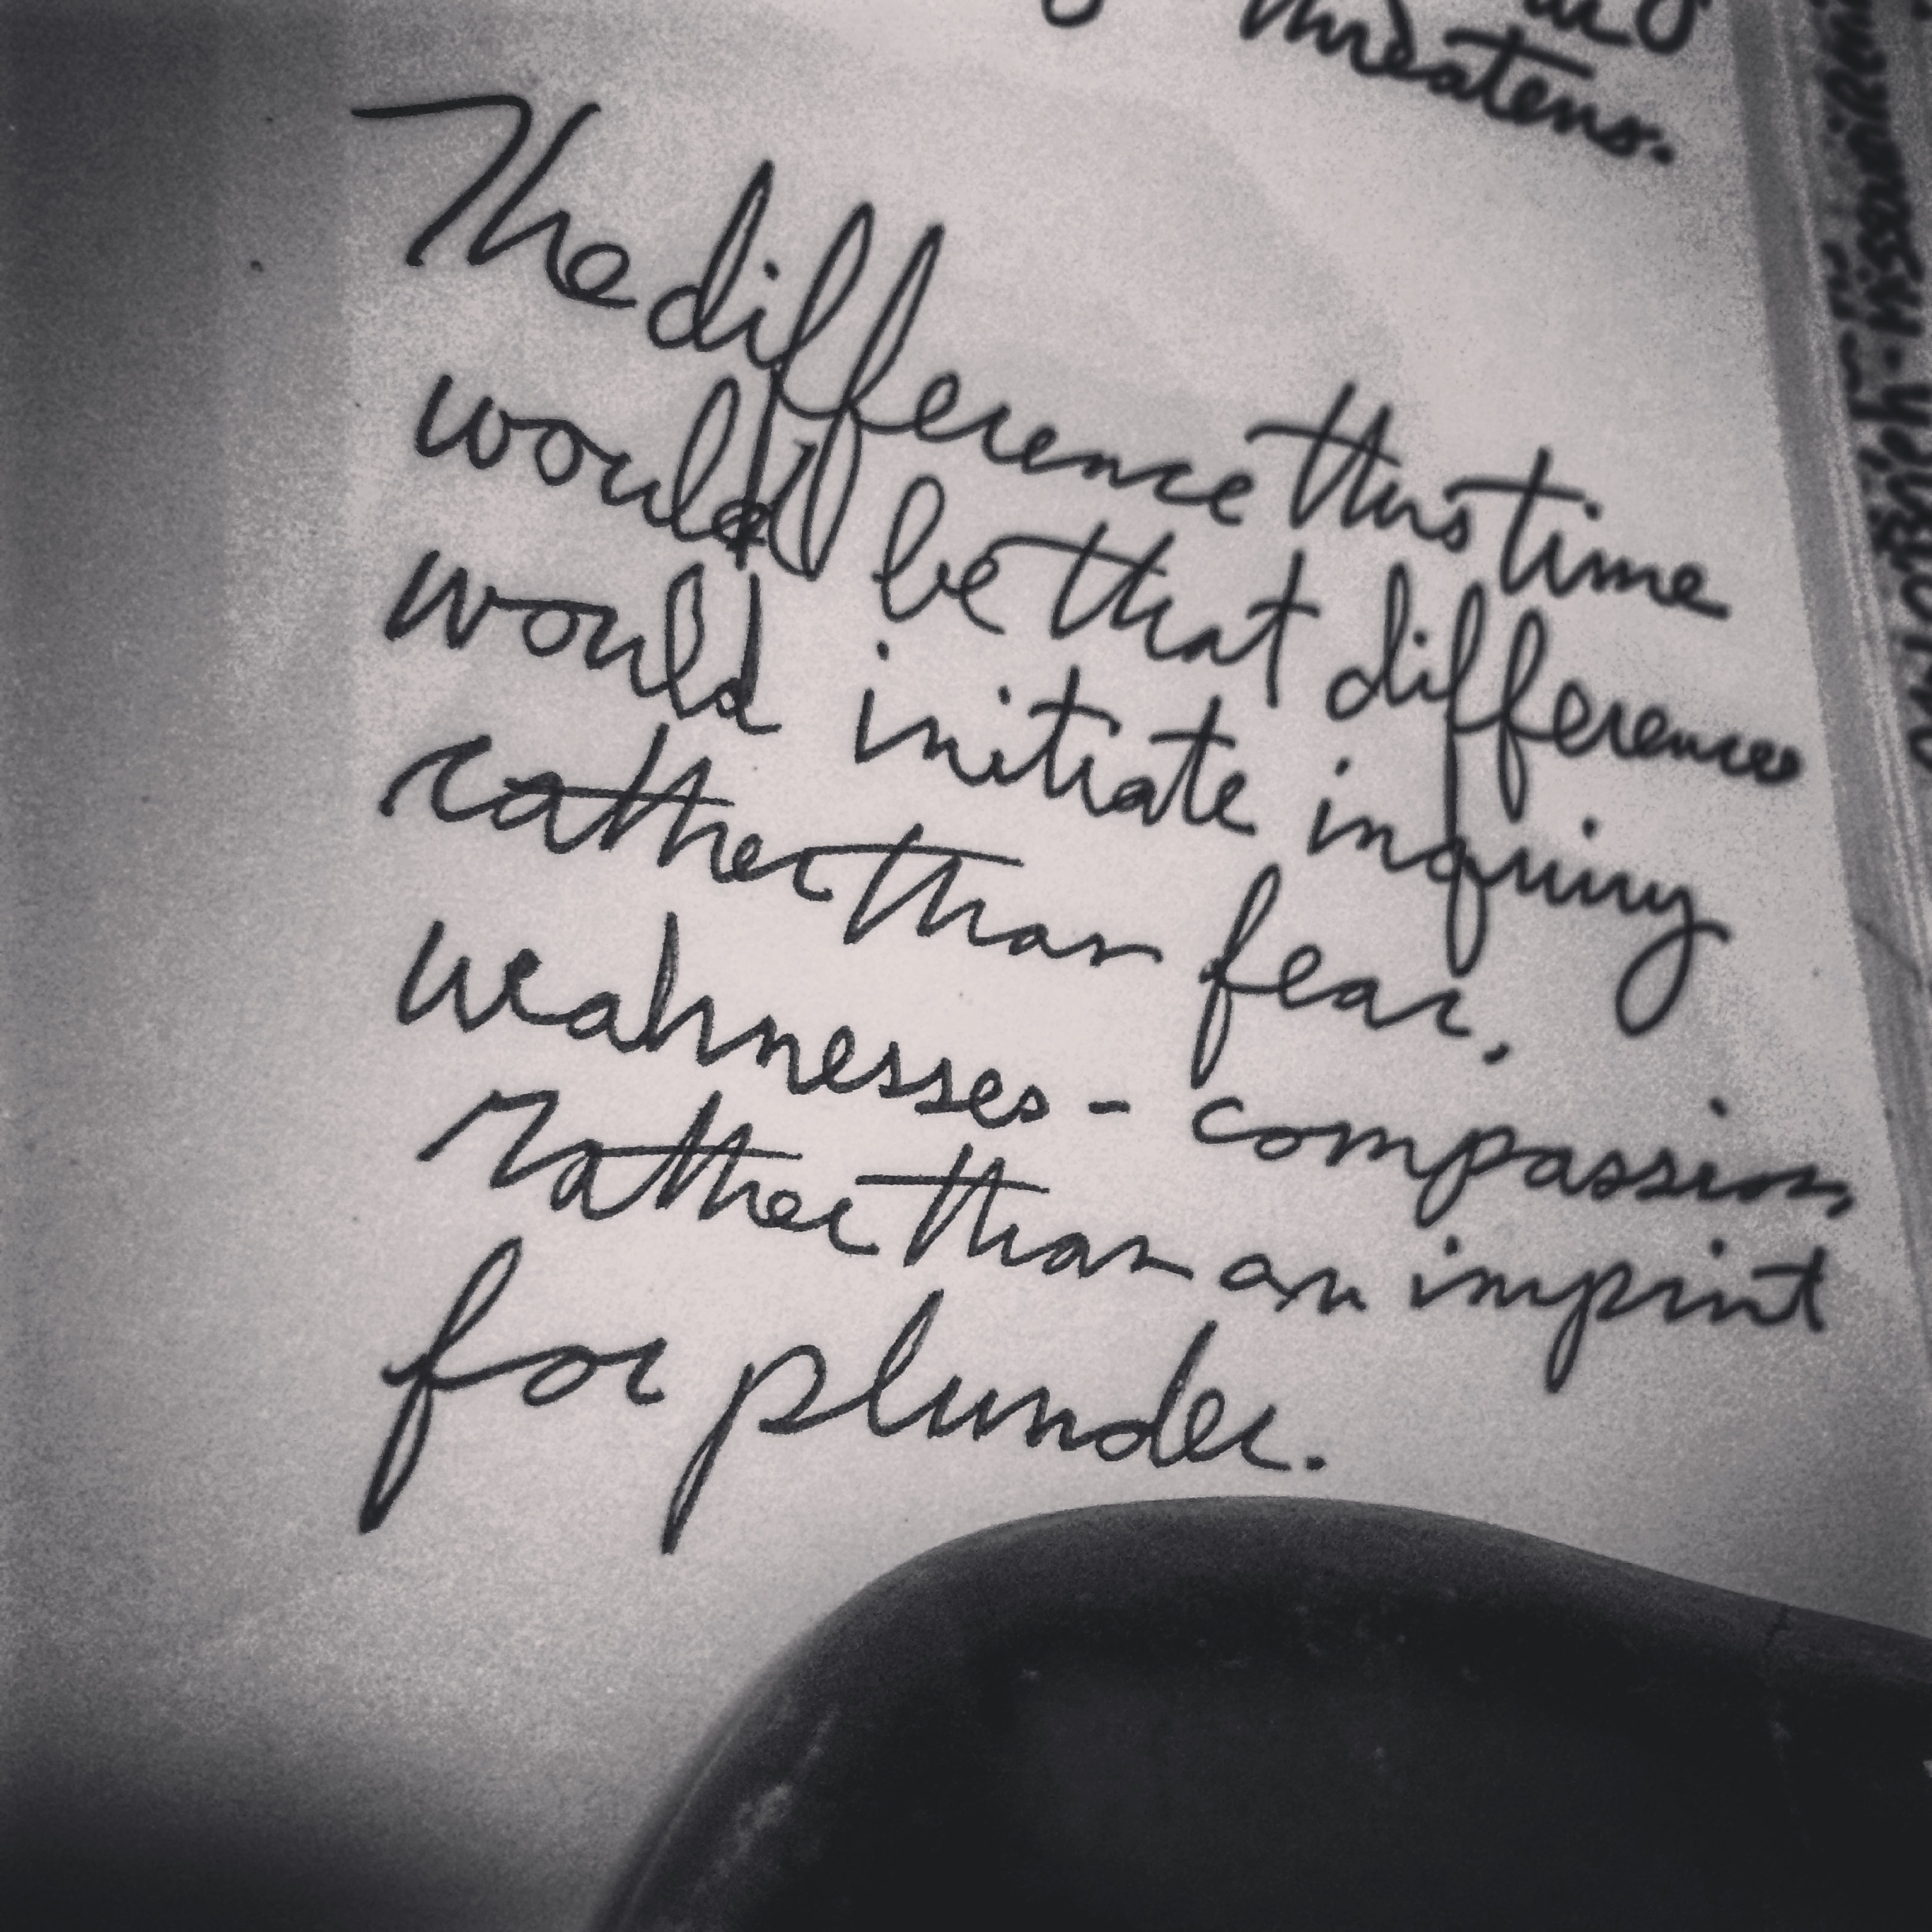 threatens.
The difference this time
would be that differences
would initiate inquiry
rather than fear,
weaknesses - compassion,
rather than an imprint
for plunder.